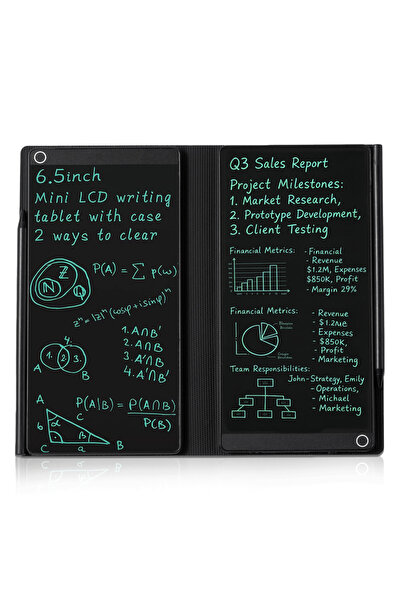 6.5inch
Mini LCD writing
tablet with case
2 ways to clear
Z
N
Q
P(A) = ∑ p(ω)
zⁿ=|z|ⁿ(cosiφ+isinφ)ⁿ
1. A∩B'
2. A∩B
3. A'∩B
4. A'∩B'
1. 2 3.
A
B
P(A|B) = P(A∩B)
P(B)
A
6
α
C
β
C
a
B
Q3 Sales Report
Project Milestones:
1. Market Research,
2. Prototype Development,
3. Client Testing
Financial Metrics:
- Financial
- Revenue
$1.2M, Expenses
$850K, Profit
- Margin 29%
Financial Metrics:
- Revenue
- Expenses
- $850K,
- Profit
- Marketing
Team Responsibilities:
John-Strategy, Emily
- Operations,
Michael
- Marketing